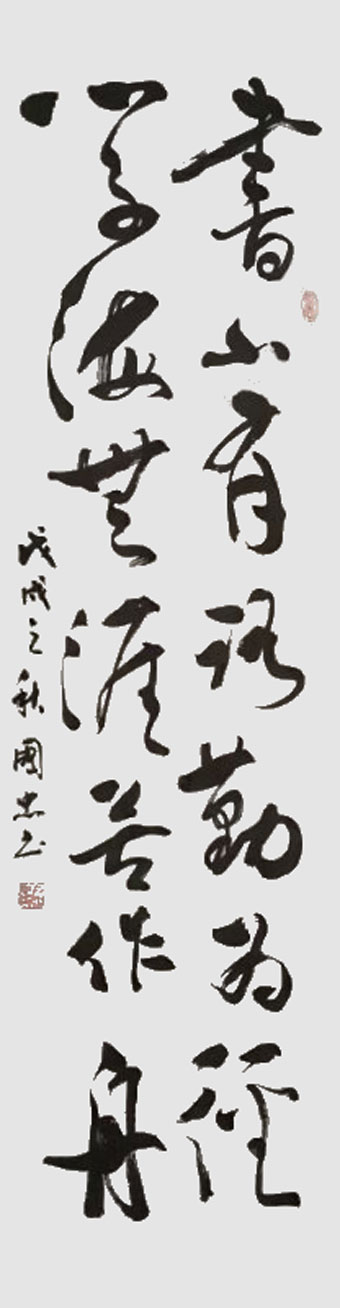 書山有路勤為徑
學海無涯苦作舟
戊戌之秋國忠书